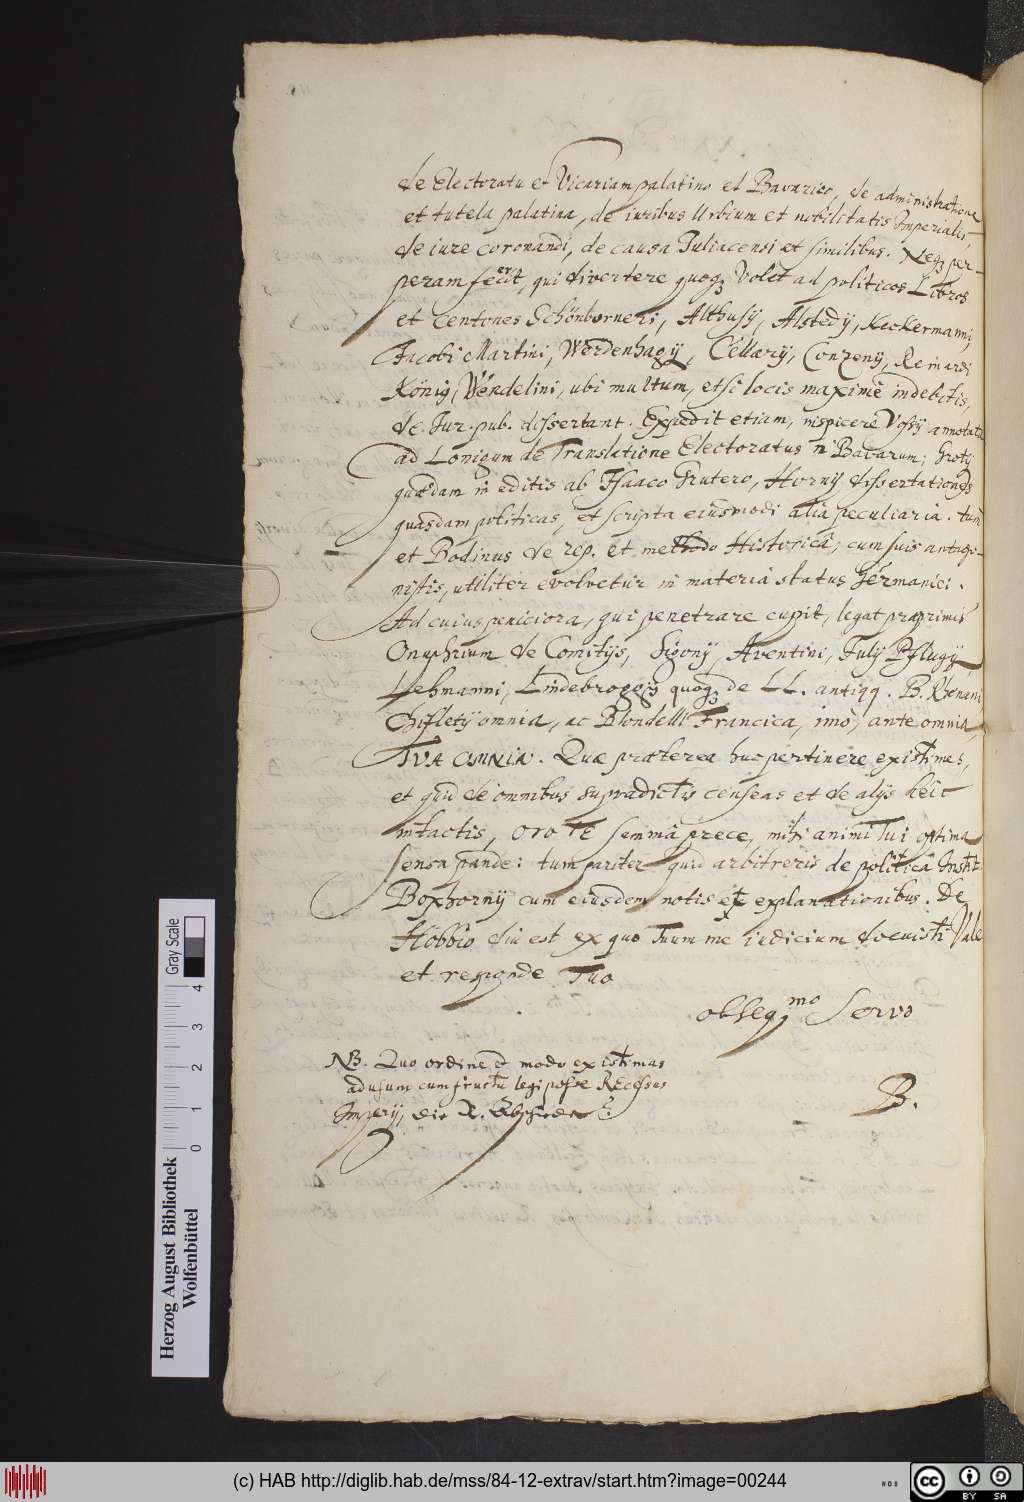 de Electoratu et Vicariam palatino et Bavarico, de administratione
et tutela palatina, de iuribus Urbium et nobilitatis Imperialis
de iure coronandi, de causa Juliacensi et similibus. Neqꝫ per-
peram fecerit, qui divertere quoqꝫ volet ad politicos Libros
et Centones Schönborneri, Althusij, Alstedij, Keckermanni,
Jacobi Martini, Werdenhagij, Cellarij, Conzenij, Reinardi
König, Wendelini, ubi multum, etsi locis maximè indebitis,
de Jur. pub. dissertant. Expedit etiam, inspicere Vossij annotata
ad Lonigum de Translatione Electoratus in Bavarum; Grotij
quædam in editis ab Isaaco Grutero, Hornij dissertationes
quasdam politicas, et scripta eiusmodi alia peculiaria. tum
et Bodinus de rep. et methodo Historicâ, cum suis antago-
nistis, utiliter evolvetur in materiâ status Germanici.
Ad cuius peniciora, qui penetrare cupit, legat præprimis
Onuphrium de Comitijs, Sigonij, Aventini, Julij Pflugij,
Lehmanni, Lindebrogij quoqꝫ de LL. antiqq. B. Rhenani,
Chifletij omnia, ac Blondelli Francica, imò, ante omnia,
TUA OMNIA. Quæ præterea huc pertinere existimes,
et quid de omnibus supradictis censeas et de alijs heic
intactis, oro TE summâ prece, mihi animi Tui optima
sensa pande: tum pariter quid arbitreris de politicâ Instit.
Boxhornij cum eiusdem notis et explanationibus. De
Hobbio diu est ex quo Tuum me iudicium docuisti Vale
et responde Tuo
obseqmo Servo
B.
NB. Quo ordine et modo existimas
ad usum cum fructu legi posse Recessus
Imperij, die R. Abschiede?
Herzog August Bibliothek
Wolfenbüttel
0 1 2 3 4
Gray Scale
(c) HAB http://diglib.hab.de/mss/84-12-extrav/start.htm?image=00244
cc BY SA